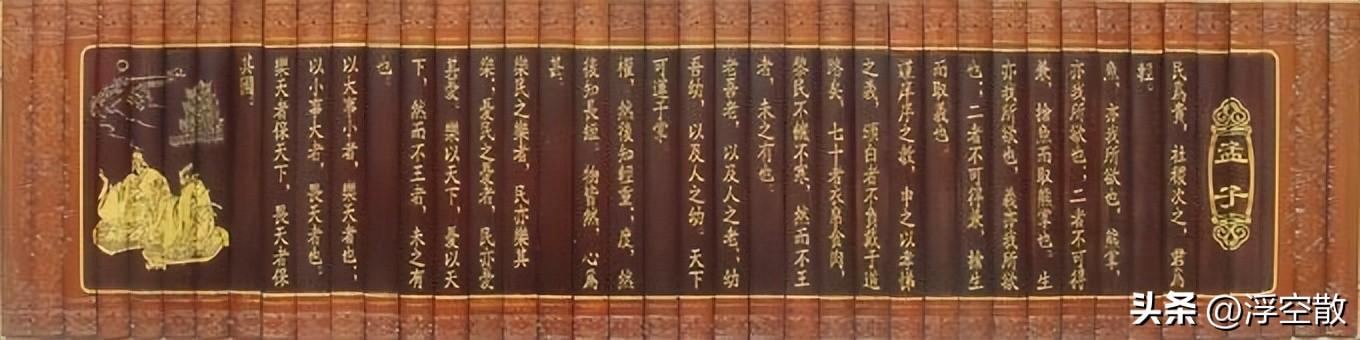 孟子
民爲貴，社稷次之，君爲
輕。
魚，亦我所欲也，熊掌，
亦我所欲也，二者不可得
兼，捨魚而取熊掌也。生
亦我所欲也，義亦我所欲
也，二者不可得兼，捨生
而取義也
謹庠序之教，申之以孝悌
之義，頒白者不負戴于道
路矣，七十者衣帛食肉，
黎民不饑不寒，然而不王
者，未之有也。
老吾老，以及人之老，幼
吾幼，以及人之幼。天下
可運于掌
權，然後知輕重，度，然
後知長短。物皆然，心爲
甚。
樂民之樂者，民亦樂其
樂，憂民之憂者，民亦憂
其憂。樂以天下，憂以天
下，然而不王者，未之有
也
以大事小者，樂天者也；
以小事大者，畏天者也。
樂天者保天下，畏天者保
其國。
头条 @浮空散